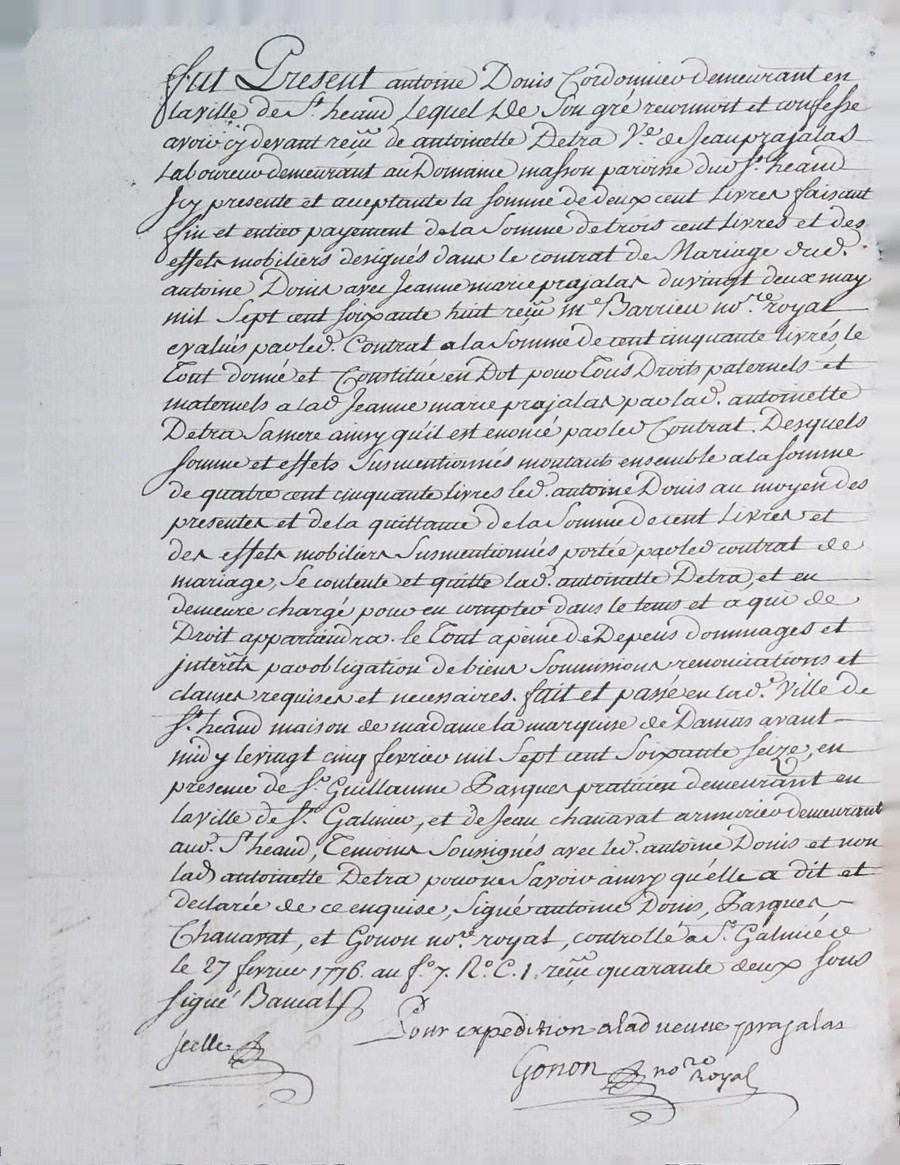 ffut Present antoine Donis Cordonnier demeurant en
la ville de St. heand Lequel de Son gré reconnoit et confesse
avoir cy devant reçu de antoinette Detra Ve. de Jean prajalas
Laboureur demeurant au Domaine masson paroisse dud. St. heand
Icy presente et acceptante la somme de deux cent Livres faisant
fin et entier payement de la Somme de trois cent Livres et des
effets mobiliers designés dans le contrat de Mariage dud.
antoine Donis avec Jeanne marie prajalas du vingt deux may
mil Sept cent soixante huit reçu me. Barrieu nore. royal
evalués par led. Contrat a la Somme de cent cinquante livres, le
Tout donné et Constitué en Dot pour Tous Droits paternels et
maternels a lad. Jeanne marie prajalas par lad. antoinette
Detra Sa mere ainsy qu'il est enoncé par led Contrat. Desquels
somme et effets Susmentionnés montants ensemble a la somme
de quatre cent cinquante livres led. antoine Donis au moyen des
presentes et de la quittance de la Somme de cent Livres et
des effets mobiliers Susmentionnés portée par led contrat de
mariage, Se contente et quitte lad. antoinette Detra, et en
demeure chargé pour en compter dans le tems et a qui de
Droit appartiendra. le Tout a peine de Depens dommages et
interêts par obligation de biens Soumissions renonciations et
clauses requises et necessaires. fait et passé en lad. Ville de
St. heand maison de madame la marquise de Damas avant
midy le vingt cinq fevrier mil Sept cent Soixante Seize, en
presence de Sr. Guillaume Pasques praticien demeurant en
la ville de St. Galmier, et de Jean chanavat armurier demeurant
aud. St. heand, Temoins Sousignés avec led. antoine Donis et non
lad antoinette Detra pour ne Savoir ainsy qu'elle a dit et
declarée de ce enquise, Signé antoine Donis, Pasques
Chanavat, et Gonon nore. royal, controllé a St. Galmier ce
le 27 fevrier 1776. au fo. 7. Ro. C. 1. reçu quarante deux sous
signé Banial
Pour expedition a lad veuve prajalas
scelle
Gonon nore royal